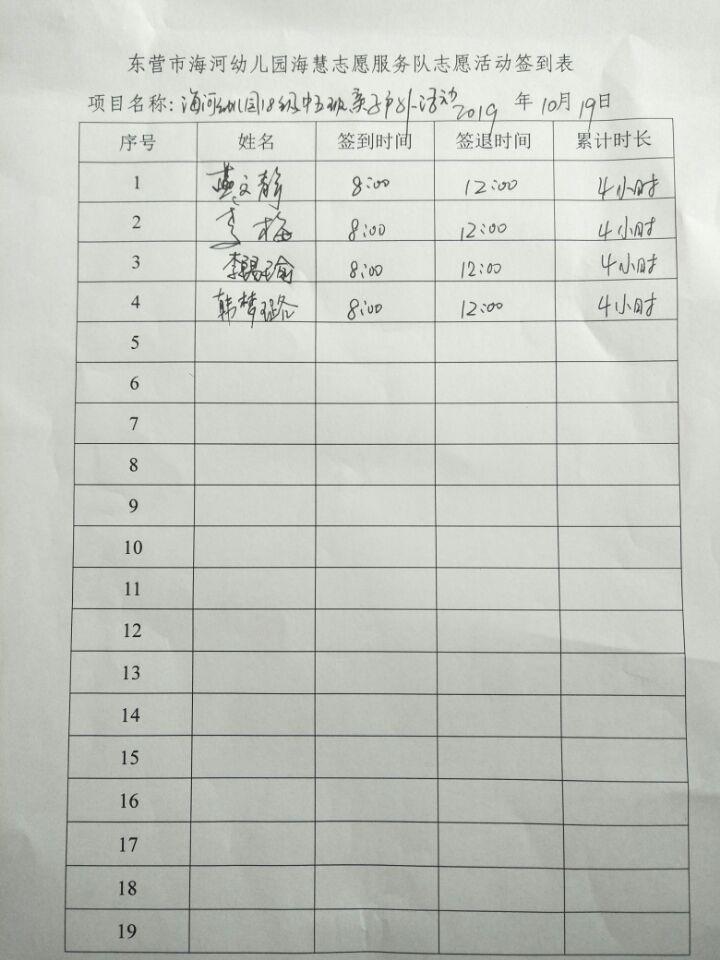 东营市海河幼儿园海慧志愿服务队志愿活动签到表
项目名称：海河幼儿园18级中五班亲子户外活动 2019 年 10月 19日
序号 姓名 签到时间 签退时间 累计时长
1 燕文静 8:00 12:00 4小时
2 李梅 8:00 12:00 4小时
3 8:00 12:00 4小时
4 韩梦璐 8:00 12:00 4小时
5
6
7
8
9
10
11
12
13
14
15
16
17
18
19